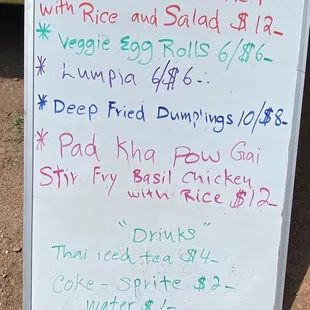 with Rice and Salad $12-
* Veggie Egg Rolls 6/$6-
* Lumpia 6/$6-
* Deep Fried Dumplings 10/$8-
* Pad Kha Pow Gai
Stir Fry Basil Chicken
with Rice $12-
"Drinks"
Thai iced tea $4-
Coke - Sprite $2-
Water $1-